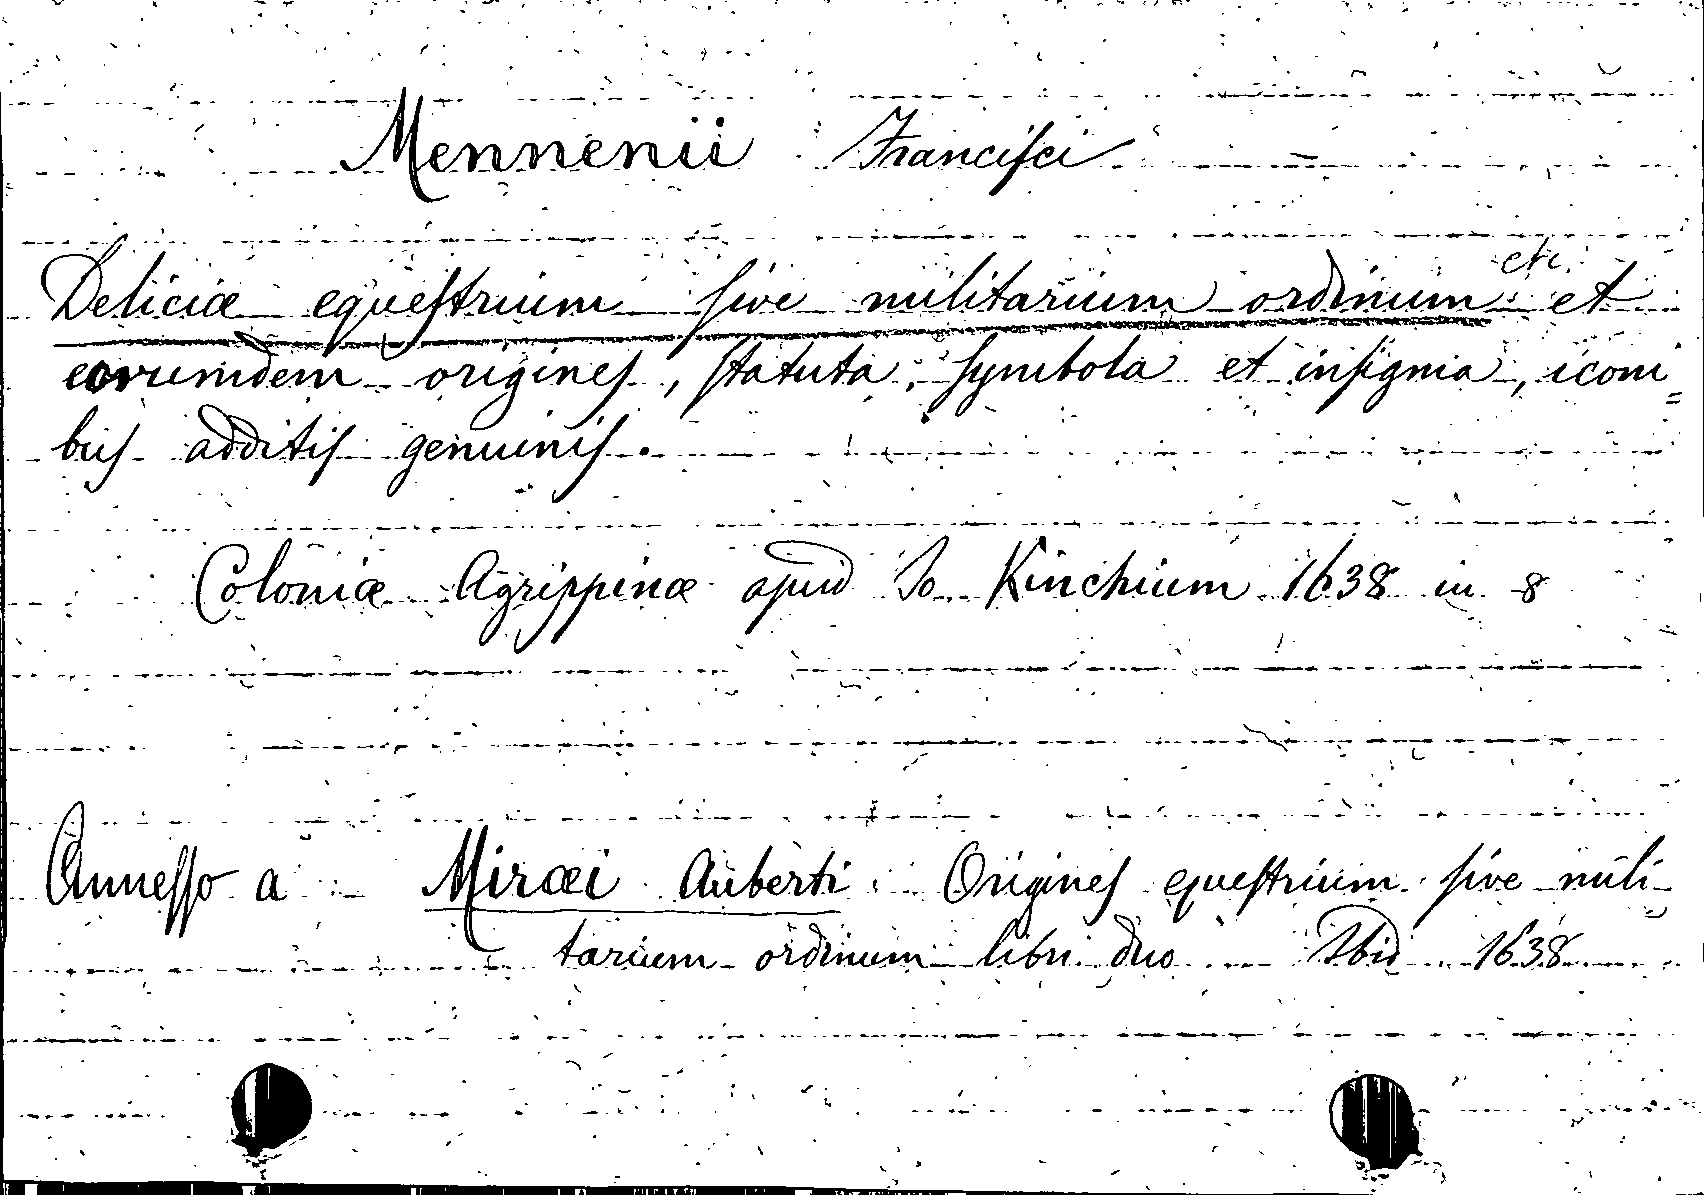 Mennenii Francisci
Deliciæ equestrium sive militarium ordinum etc. et
eorumdem origines, statuta, symbola et insignia, iconi=
bus additis genuinis.
Coloniæ Agrippinæ apud Jo. Kinchium 1638 in 8
Annesso a Miræi Auberti. Origines equestrium sive mili-
tarium ordinum libri duo Ibid 1638